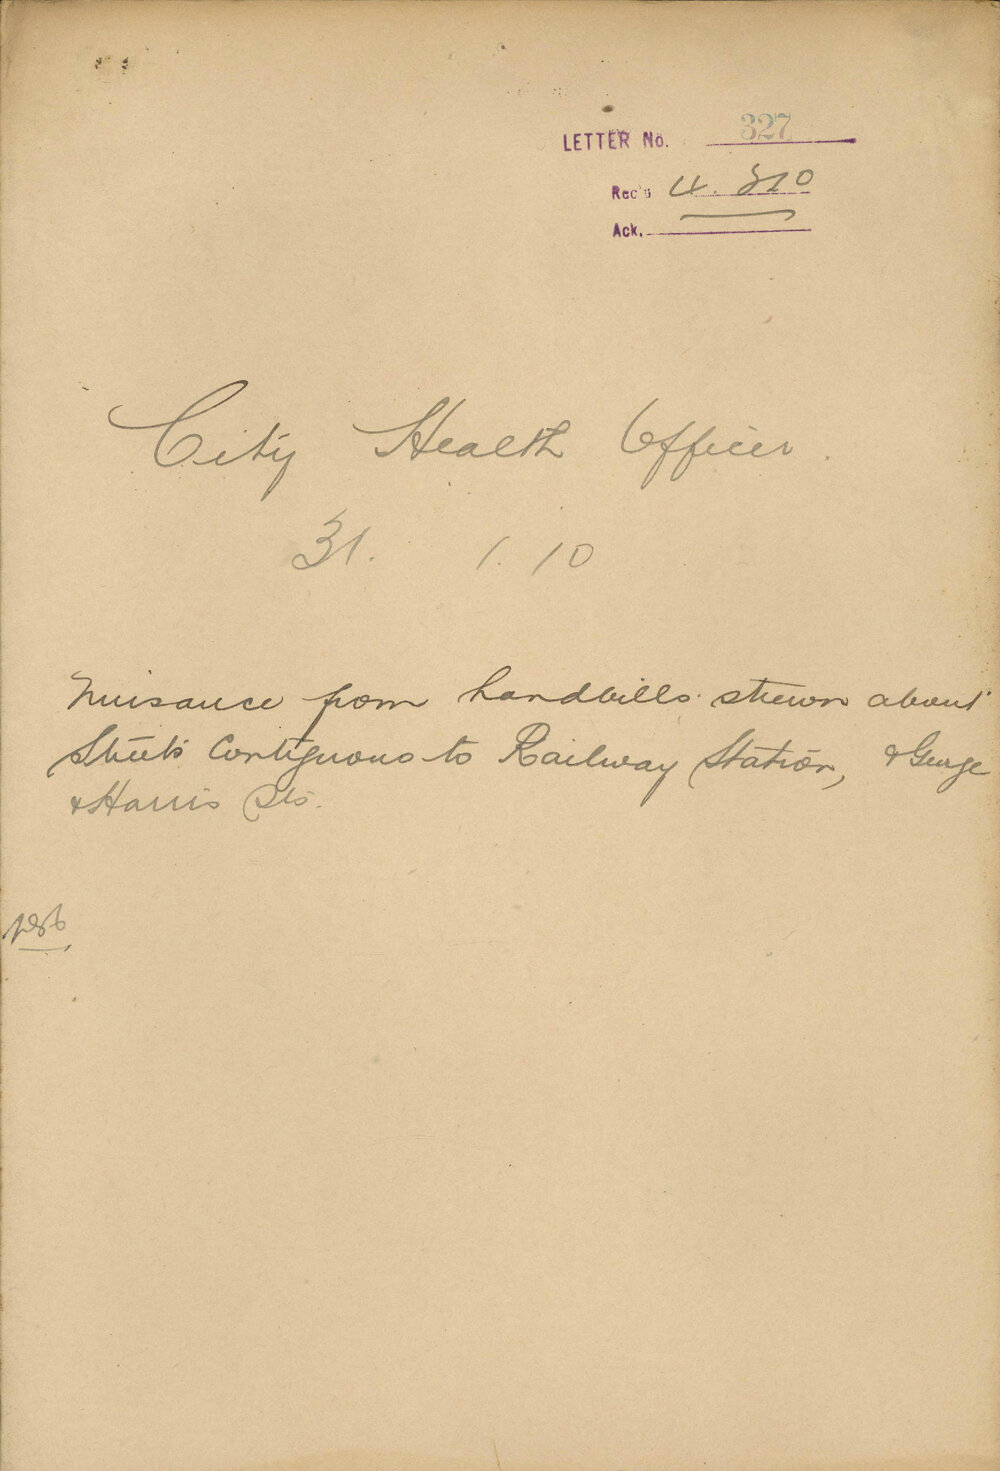 LETTER No. 327
Rec'd 4. 2 10
Ack.
City Health Officer.
31. 1. 10
Nuisance from handbills strewn about
Streets contiguous to Railway Station, & George
& Harris Sts.